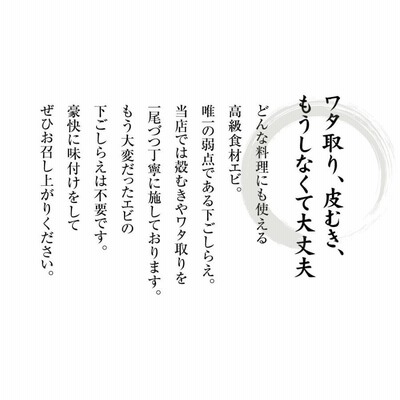 ワタ取り、皮むき、
もうしなくて大丈夫
どんな料理にも使える
高級食材エビ。
唯一の弱点である下ごしらえ。
当店では殻むきやワタ取りを
一尾づつ丁寧に施しております。
もう大変だったエビの
下ごしらえは不要です。
豪快に味付けをして
ぜひお召し上がりください。